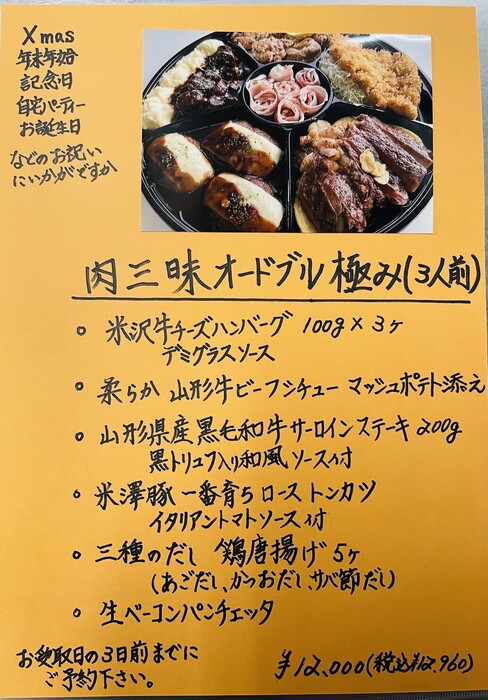 Xmas
年末年始
記念日
自宅パーティー
お誕生日
などのお祝い
にいかがですか
肉三昧オードブル極み(3人前)
• 米沢牛チーズハンバーグ 100g×3ヶ
デミグラスソース
• 柔らか山形牛ビーフシチュー マッシュポテト添え
• 山形県産黒毛和牛サーロインステーキ200g
黒トリュフ入り和風ソース付
• 米澤豚一番育ちローストンカツ
イタリアントマトソース付
• 三種のだし 鶏唐揚げ5ヶ
(あごだし、かつおだし、サバ節だし)
• 生ベーコンパンチェッタ
お受取日の3日前までに
ご予約下さい。
¥12,000(税込¥12,960)